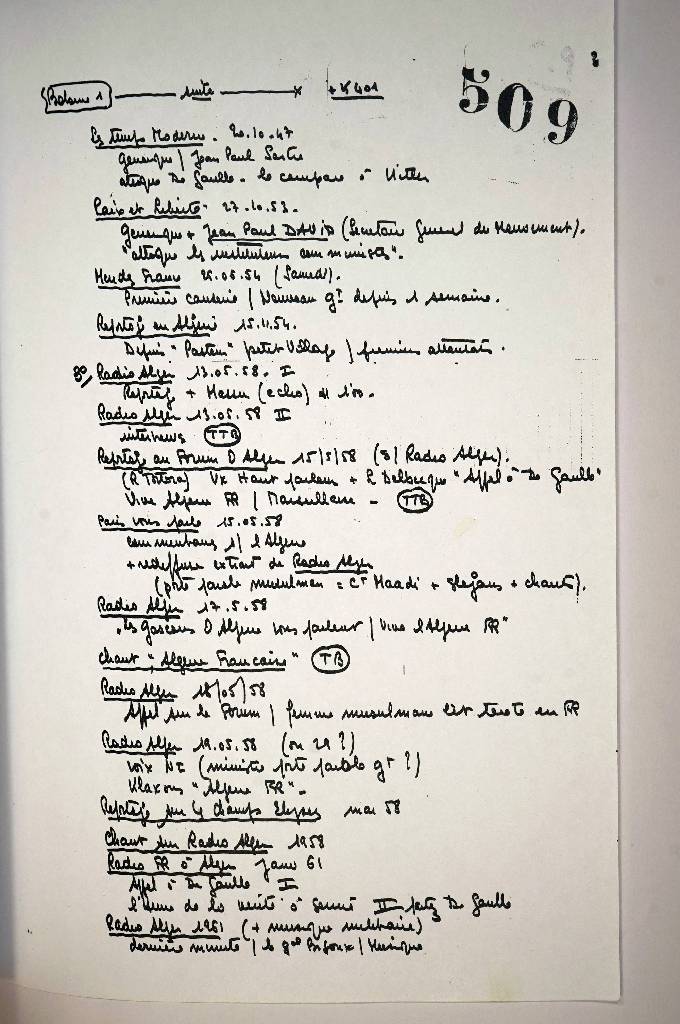 509
Bobine 1 — suite — × + K 401
Les temps Moderne. 20.10.47
generique / Jean Paul Sartre
attaque De Gaulle - le compare à Hitler
Paix et Liberté. 27.10.53.
generique + Jean Paul DAVID (Secretaire General du Mouvement).
"attaque les instituteurs communistes".
Mendes France 26.06.54 (Samedi).
Première causerie / Nouveau gt depuis 1 semaine.
Reptage en Algérie 15.11.54.
Depuis "Pasteur" petit Village / premiers attentats.
Radio Alger 13.05.58. I
Reptage + Massu (echo)
Radio Alger 13.05.58 II
interviews TTB
Reptage au Forum D Alger 15/5/58 (s/ Radio Alger).
Vx Haut parleur + L Delbecque "Appel à De Gaulle"
Vive Algerie FR / Marseillaise - TTB
Paris vous parle 15.05.58
commentaires s/ l Algerie
+ rediffuse extrait de Radio Alger
(porte parole musulman = Ct Maadi + slogans + chants).
Radio Alger 17.5.58
"les gascons D Algerie vous parlent / Vive l Algerie FR"
Chant "Algerie Francaise" TB
Radio Alger 18/05/58
Appel sur le Forum / femme musulmane lit texte en FR
Radio Alger 19.05.58 (ou 29 ?)
voix (ministre porte parole gt ?)
Klaxons "Algerie FR".
Reptage sur les Champs Elysees mai 58
Chant sur Radio Alger 1958
Radio FR à Alger Janv 61
Appel à De Gaulle I
l'heure de la verité a sonné II De Gaulle
Radio Alger 1961 (+ musique militaire)
derniere minute / le gal Bigoux / Musique